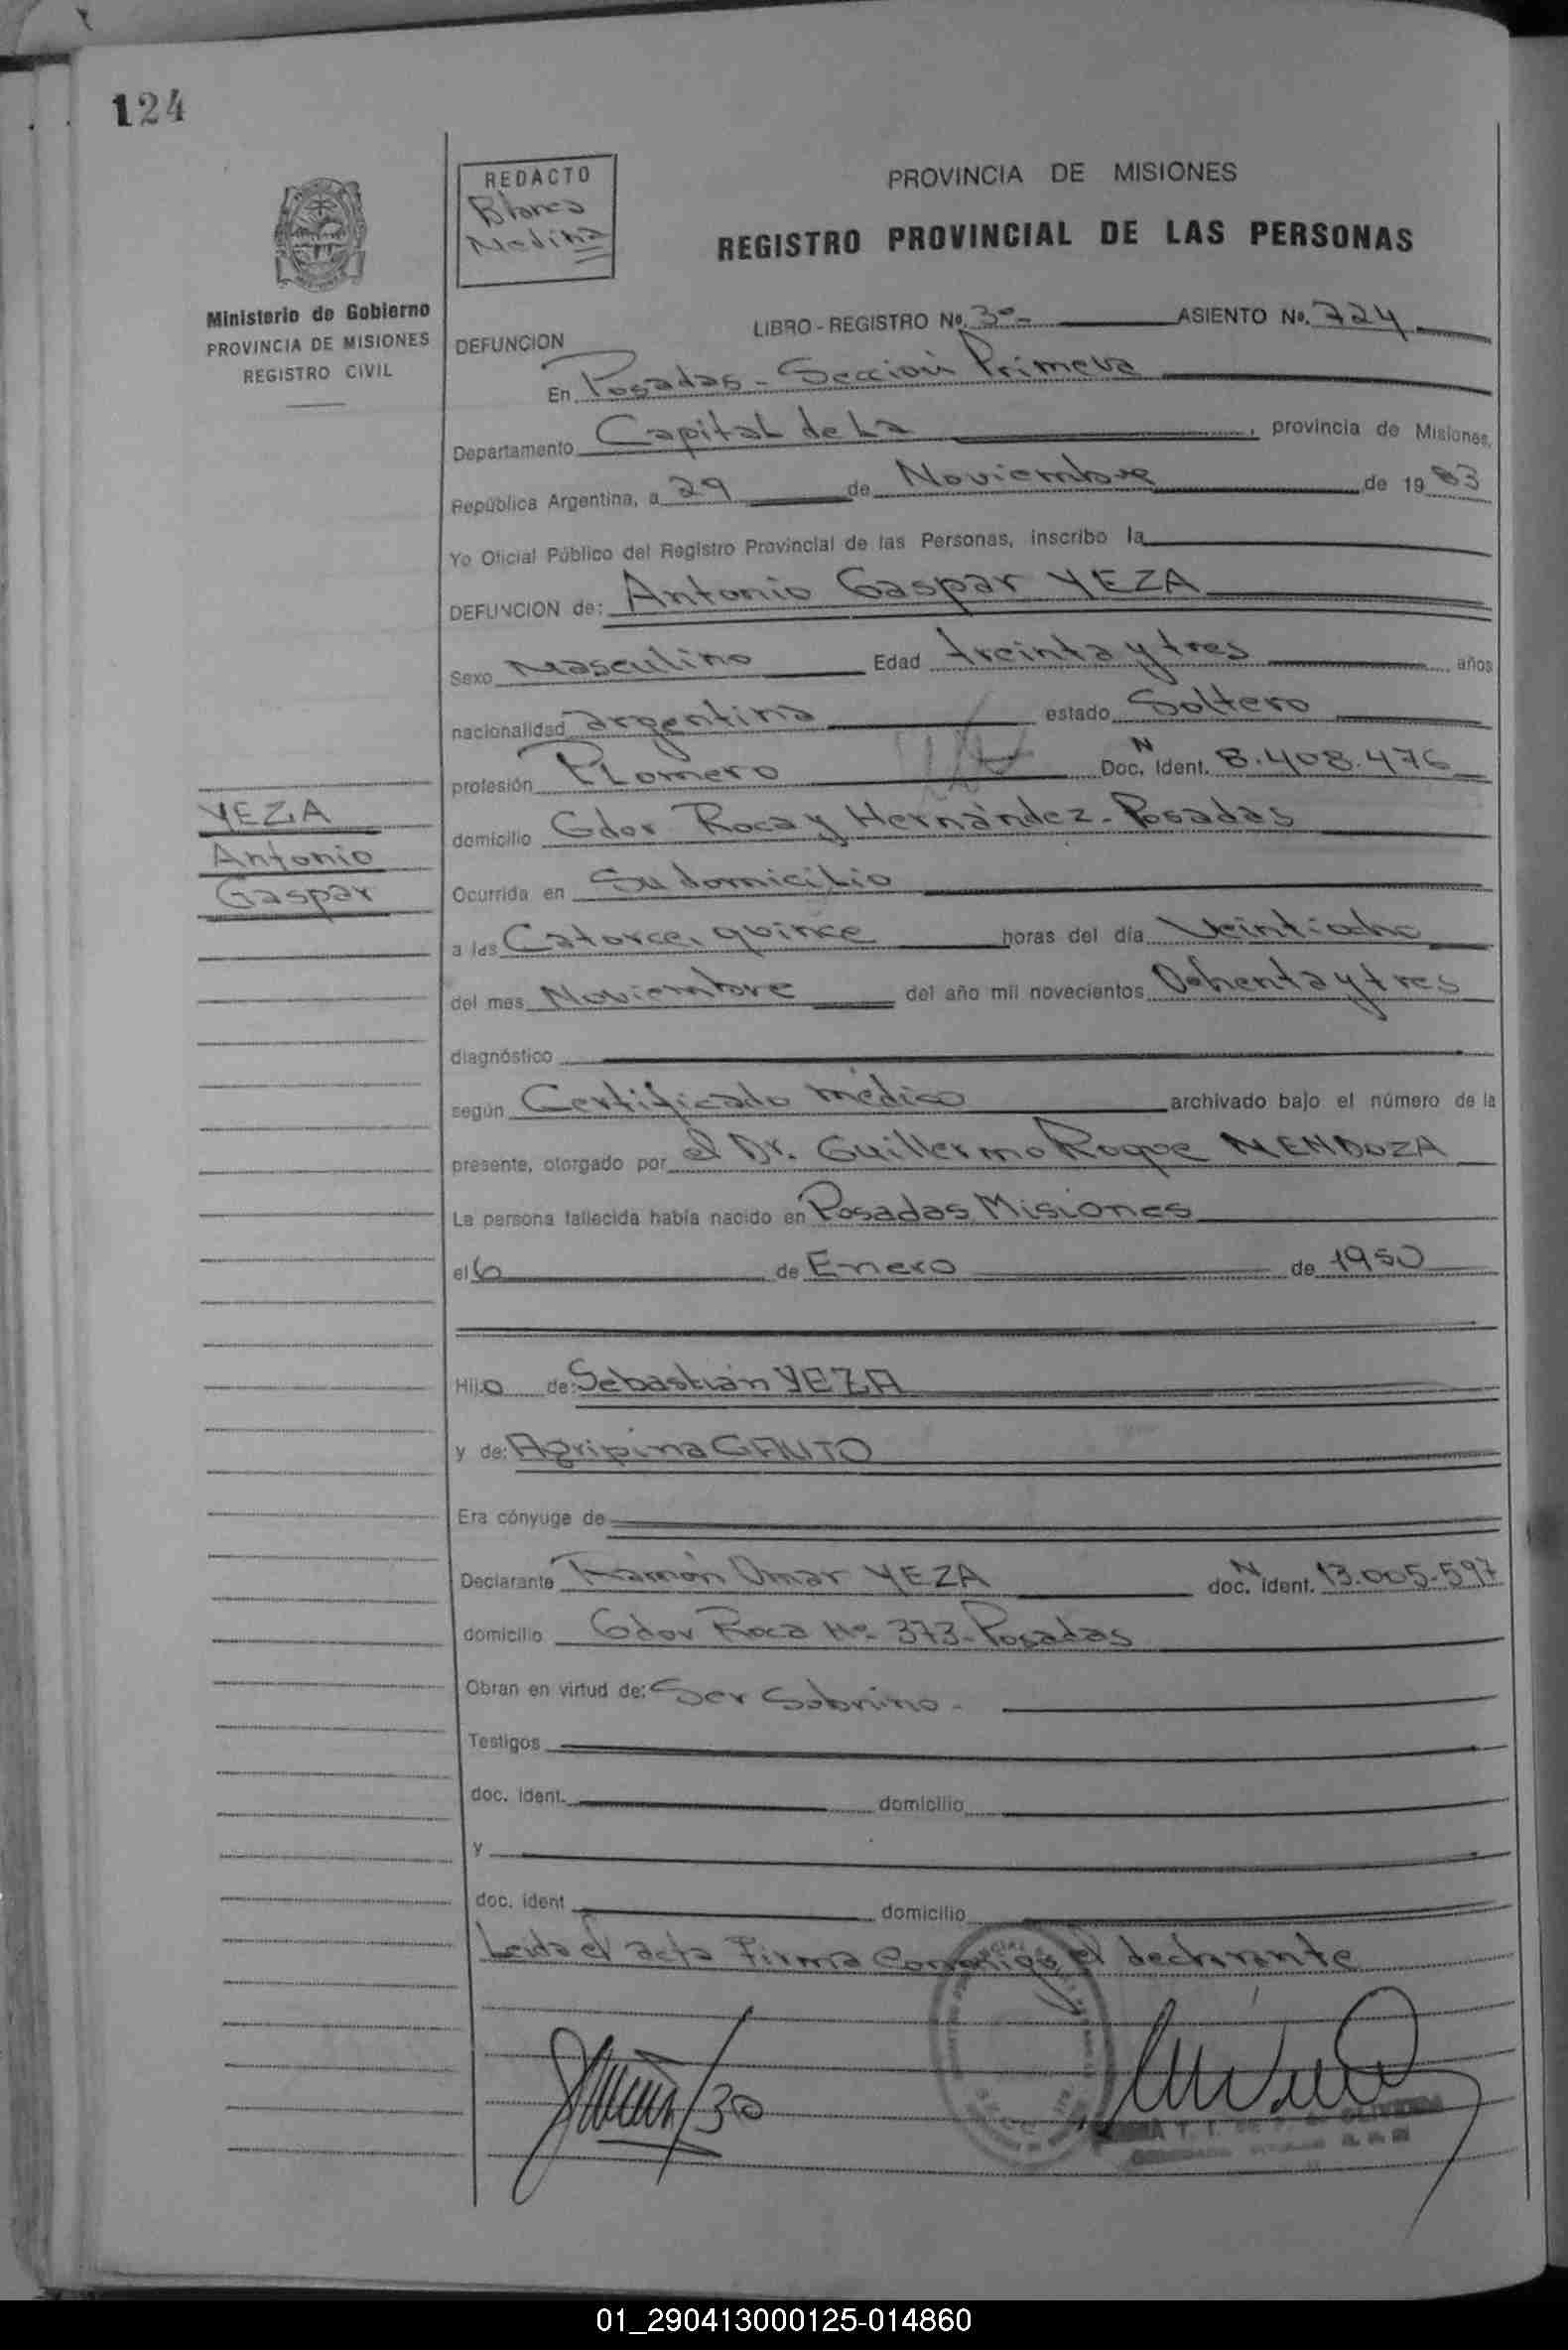 124
REDACTO
Blanca
Medina
PROVINCIA DE MISIONES
REGISTRO PROVINCIAL DE LAS PERSONAS
Ministerio de Gobierno
PROVINCIA DE MISIONES
REGISTRO CIVIL
LIBRO - REGISTRO Nº. 3º- ASIENTO Nº. 724
DEFUNCION
En Posadas - Sección Primera
Departamento Capital de La , provincia de Misiones,
República Argentina, a 29 de Noviembre de 1983
Yo Oficial Público del Registro Provincial de las Personas, inscribo la
DEFUNCION de: Antonio Gaspar YEZA
Sexo Masculino Edad treinta y tres años
nacionalidad argentina estado Soltero
profesión Plomero Doc. N Ident. 8.408.476
YEZA
Antonio
Gaspar
domicilio Gdor Roca y Hernández - Posadas
Ocurrida en Su domicilio
a las Catorce, quince horas del día Veintiocho
del mes Noviembre del año mil novecientos Ochenta y tres
diagnóstico
según Certificado médico archivado bajo el número de la
presente, otorgado por el Dr. Guillermo Roque MENDOZA
La persona fallecida había nacido en Posadas Misiones
el 6 de Enero de 1950
Hijo de: Sebastián YEZA
y de: Agripina GAUTO
Era cónyuge de
Declarante Ramón Omar YEZA doc. N ident. 13.005.597
domicilio Gdor Roca Nº 373 - Posadas
Obran en virtud de: Ser Sobrino -
Testigos
doc. ident. domicilio
y
doc. ident domicilio
Leida el acta Firma Conmigo el declarante
/30
01_290413000125-014860